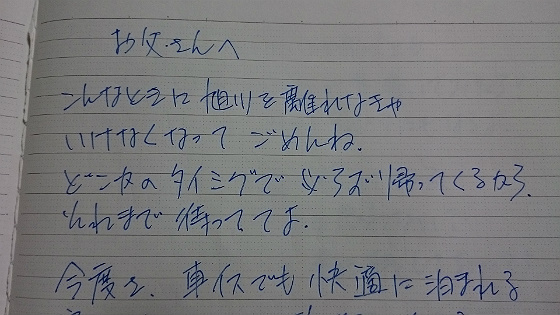 お父さんへ
こんなときに旭川を離れなきゃ
いけなくなって ごめんね.
どこかのタイミングで 必ず帰ってくるから、
それまで待っててよ.
今度は、車イスでも快適に泊まれる